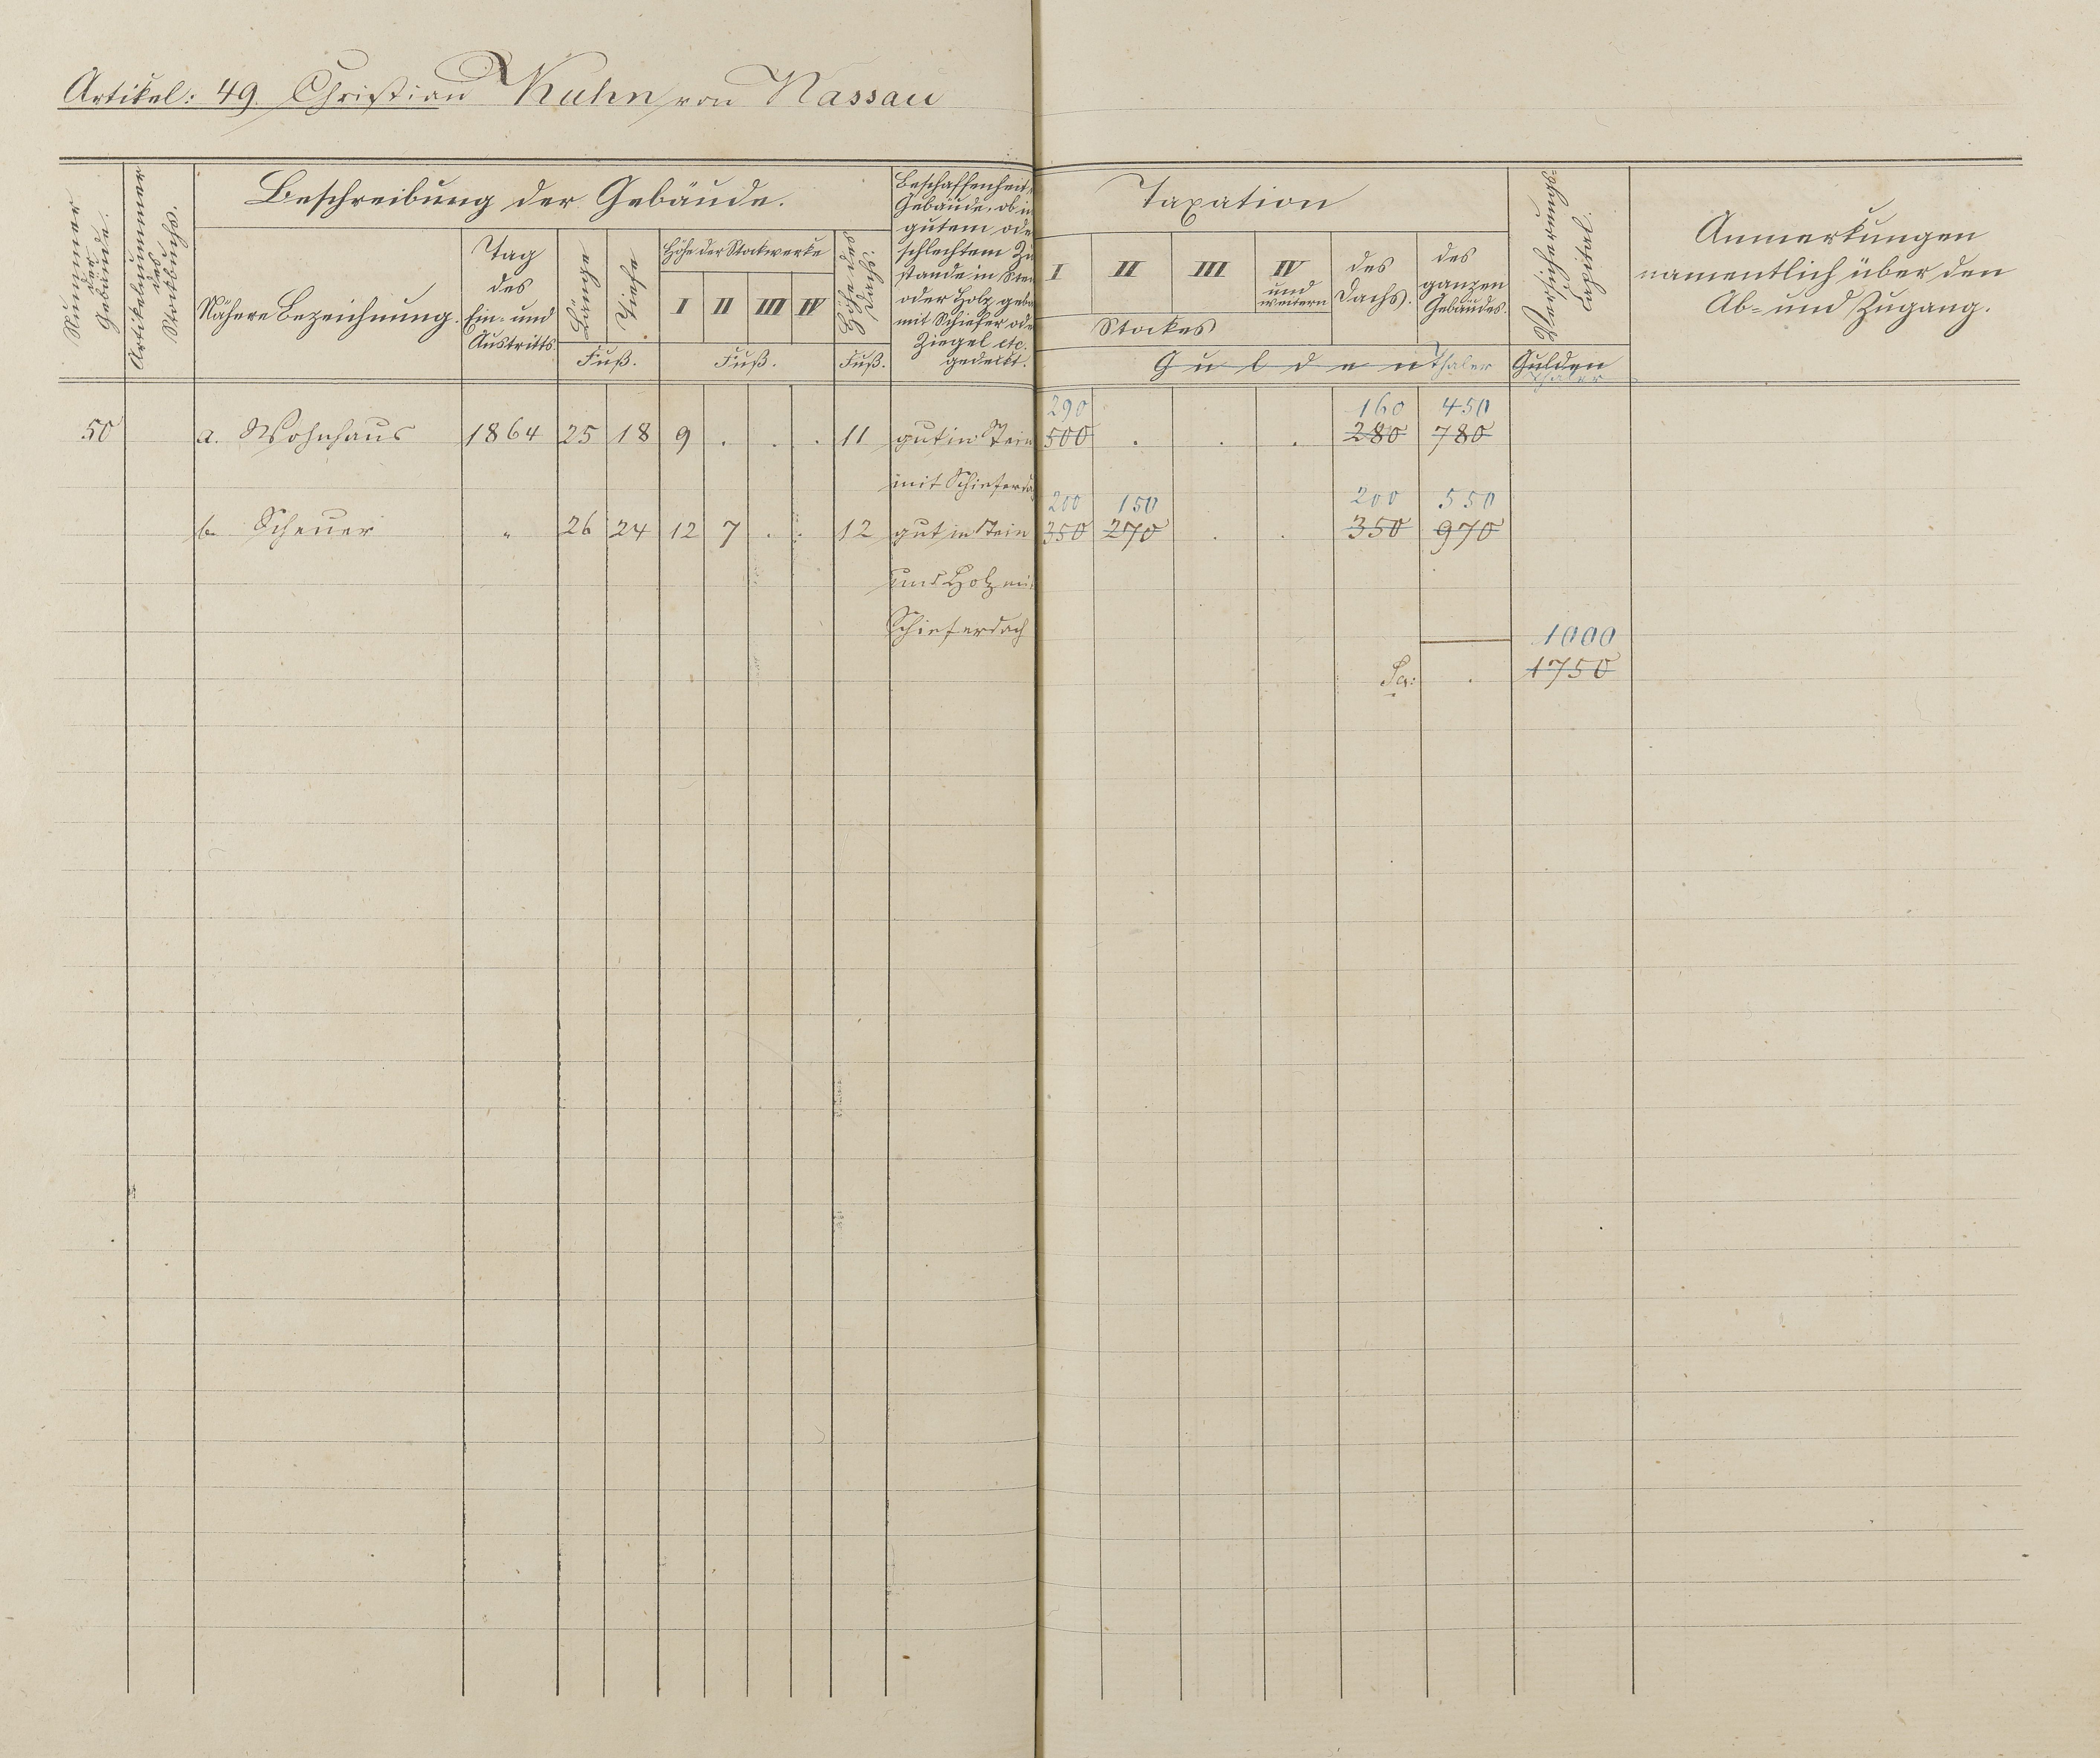 Artikel: 49. Christian Kuhn von Nassau
Nummer der Gebäude.
Artikelnummer des Stockbuchs.
Beschreibung der Gebäude.
Nähere Bezeichnung.
Tag des Ein- und Austritts
Länge
Tiefe
Fuß.
Höhe der Stockwerke
I II III IV
Fuß.
Höhe des Dachs.
Fuß.
Beschaffenheit
Gebäude, ob in
gutem ode
schlechtem Zu
stande in Stei
oder Holz geba
mit Schiefer ode
Ziegel etc.
gedeckt.
Taxation
I II III IV und weitern
Stockes
des Dachs.
des ganzen Gebäudes.
Gulden Thaler
Versicherungs-Capital.
Gulden
Thaler
Anmerkungen
namentlich über den
Ab- und Zugang.
290 160 450
50 a. Wohnhaus 1864 25 18 9 . . . 11 gut in Stein 500 . . . 280 780
mit Schieferda
200 150 200 550
b. Scheuer " 26 24 12 7 . . 12 gut in Stein 350 270 . . 350 970
und Holz mi
Schieferdach
1000
. 1750